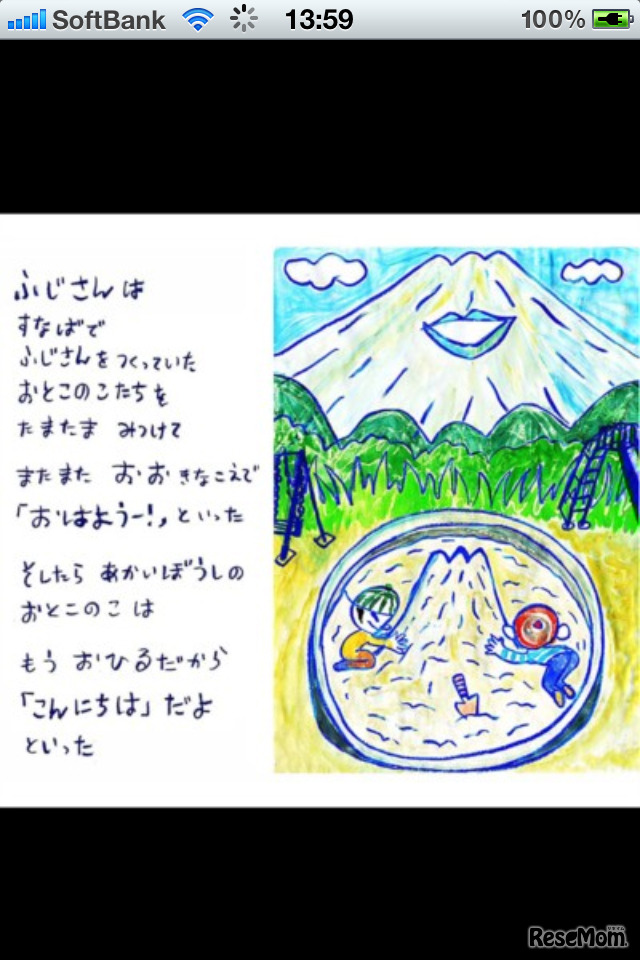 SoftBank 13:59 100%
ふじさんは
すなばで
ふじさんをつくっていた
おとこのこたちを
たまたま みつけて
またまた おおきなこえで
「おはようー!」といった
そしたら あかいぼうしの
おとこのこは
もう おひるだから
「こんにちは」だよ
といった
ReseMom